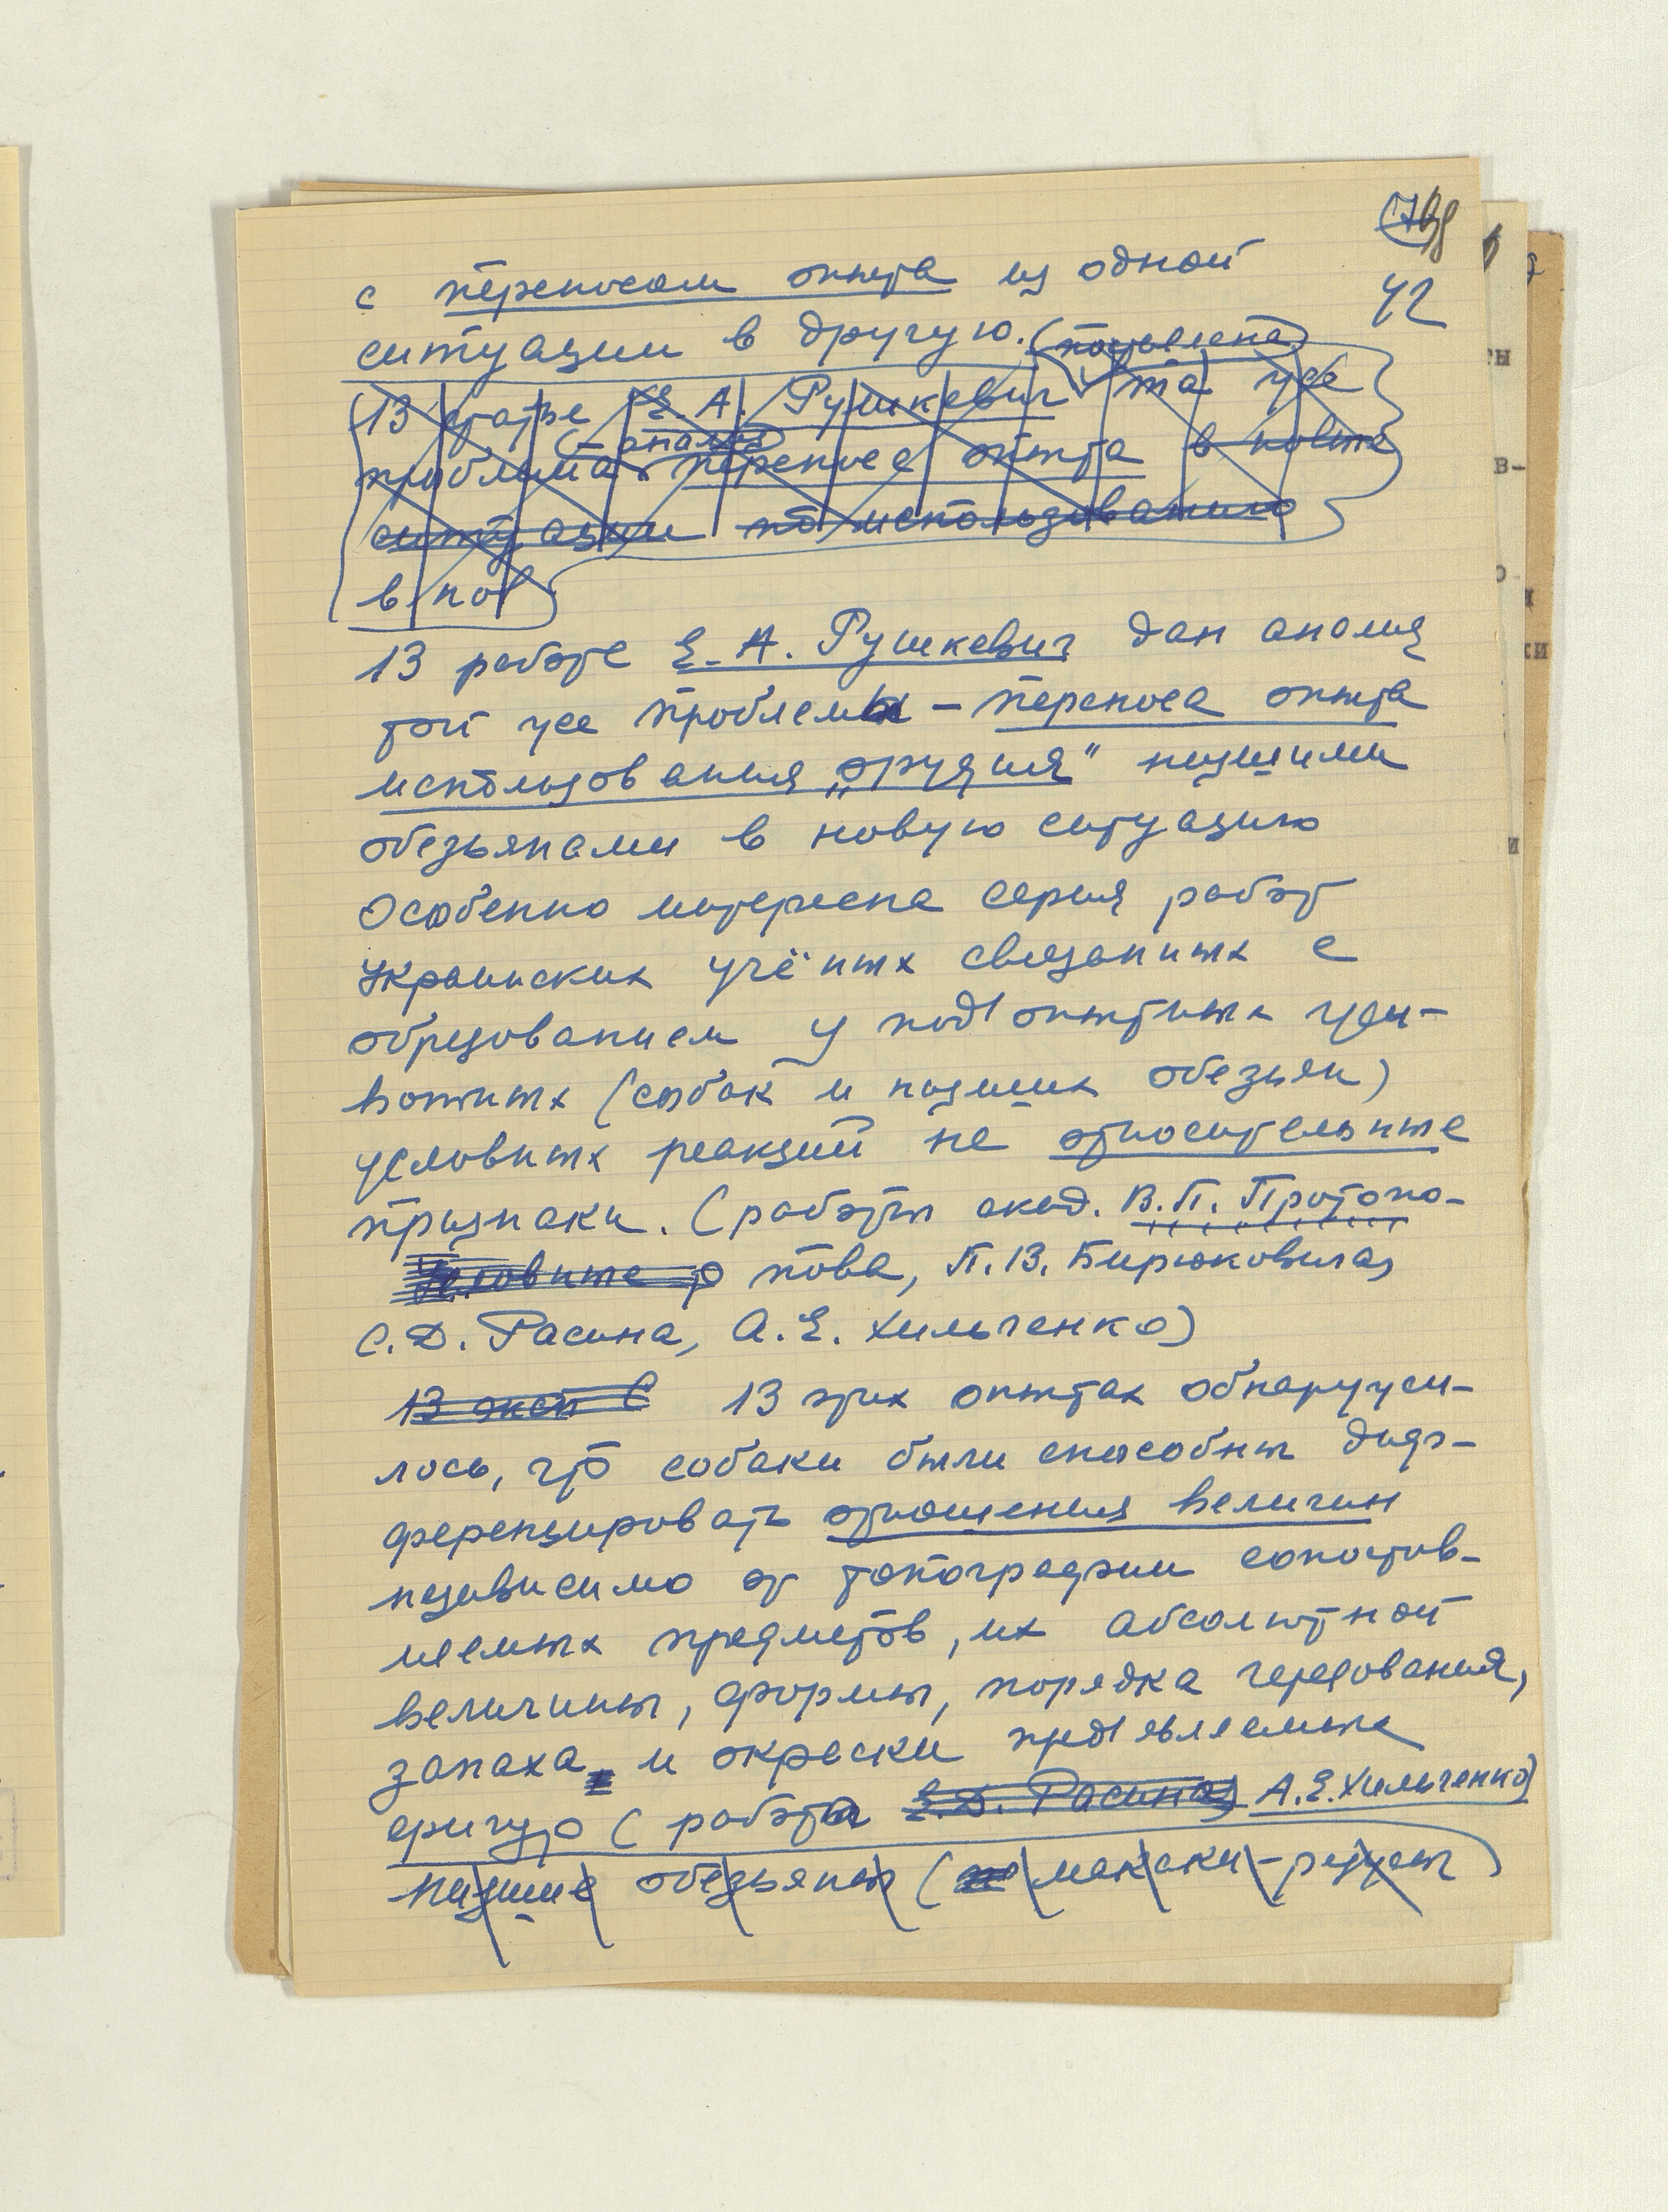 98
42
с переносом опыта из одной
ситуации в другую. (посвящена)
В статье Е. А. Рушкевич та же
(– анализ)
проблема переноса опыта в новые
ситуации по использованию
в нов
В работе Е. А. Рушкевич дан анализ
той же проблемы – переноса опыта
использования „орудия" низшими
обезьянами в новую ситуацию
Особенно интересна серия работ
Украинских учёных связанных с
образованием у подопытных жи-
вотных (собак и низших обезьян)
условных реакций на относительные
признаки. (работы акад. В.П. Протопо-
пова, П.В. Бирюковича,
С.Д. Расина, А.Е. Хильченко)
В эксп С В этих опытах обнаружи-
лось, что собаки были способны диф-
ференцировать отношения величин
независимо от топографии сопостав-
ляемых предметов, их абсолютной
величины, формы, порядка чередования,
запаха и окраски предъявляемых
фигур (работа С.Д. Расина А.Е. Хильченко)
Низшие обезьяны (макаки-резусы)
ты
в-
о-
ки
и